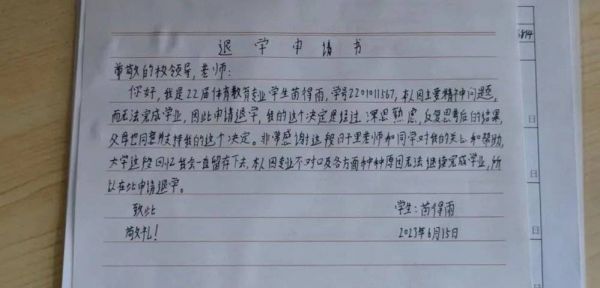 退学申请书
尊敬的校领导,老师:
你好,我是22届体育教育专业学生苗得雨,学号2201011367,本人因主要精神问题,
而无法完成学业,因此申请退学,我的这个决定是经过深思熟虑,反复思考后的结果,
父母也同意并支持我的这个决定。非常感谢这段时间里老师和同学对我的关心和帮助,
大学这段回忆我会一直留存下去,本人因专业不对口及各方面种种原因无法继续完成学业,所
以在此申请退学。
致此
敬礼!
学生:苗得雨
2023年6月15日
日
日